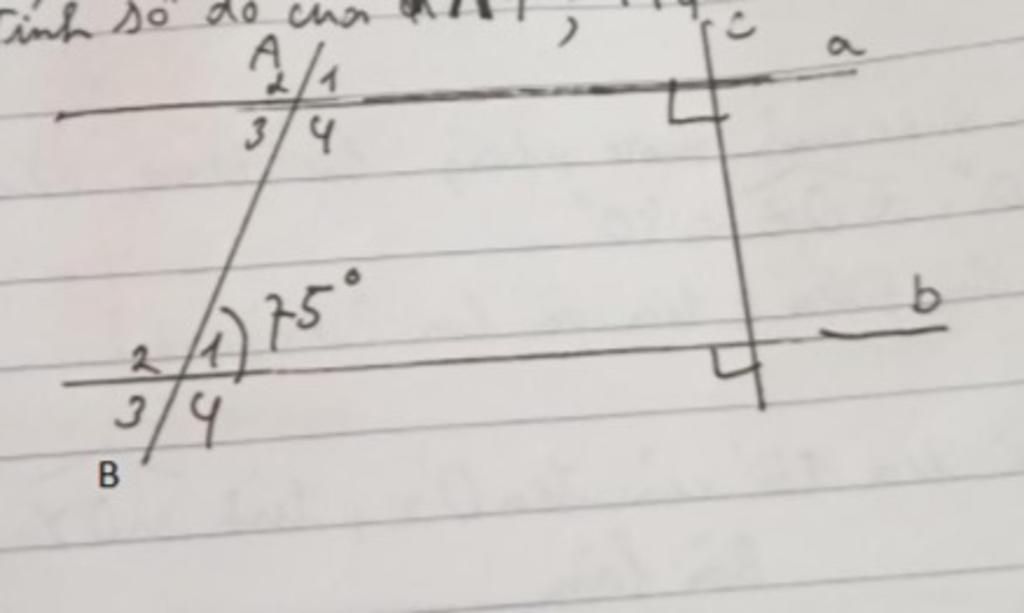 Tính số đo của
c
a
A
2 1
3 4
75°
b
2 1
3 4
B